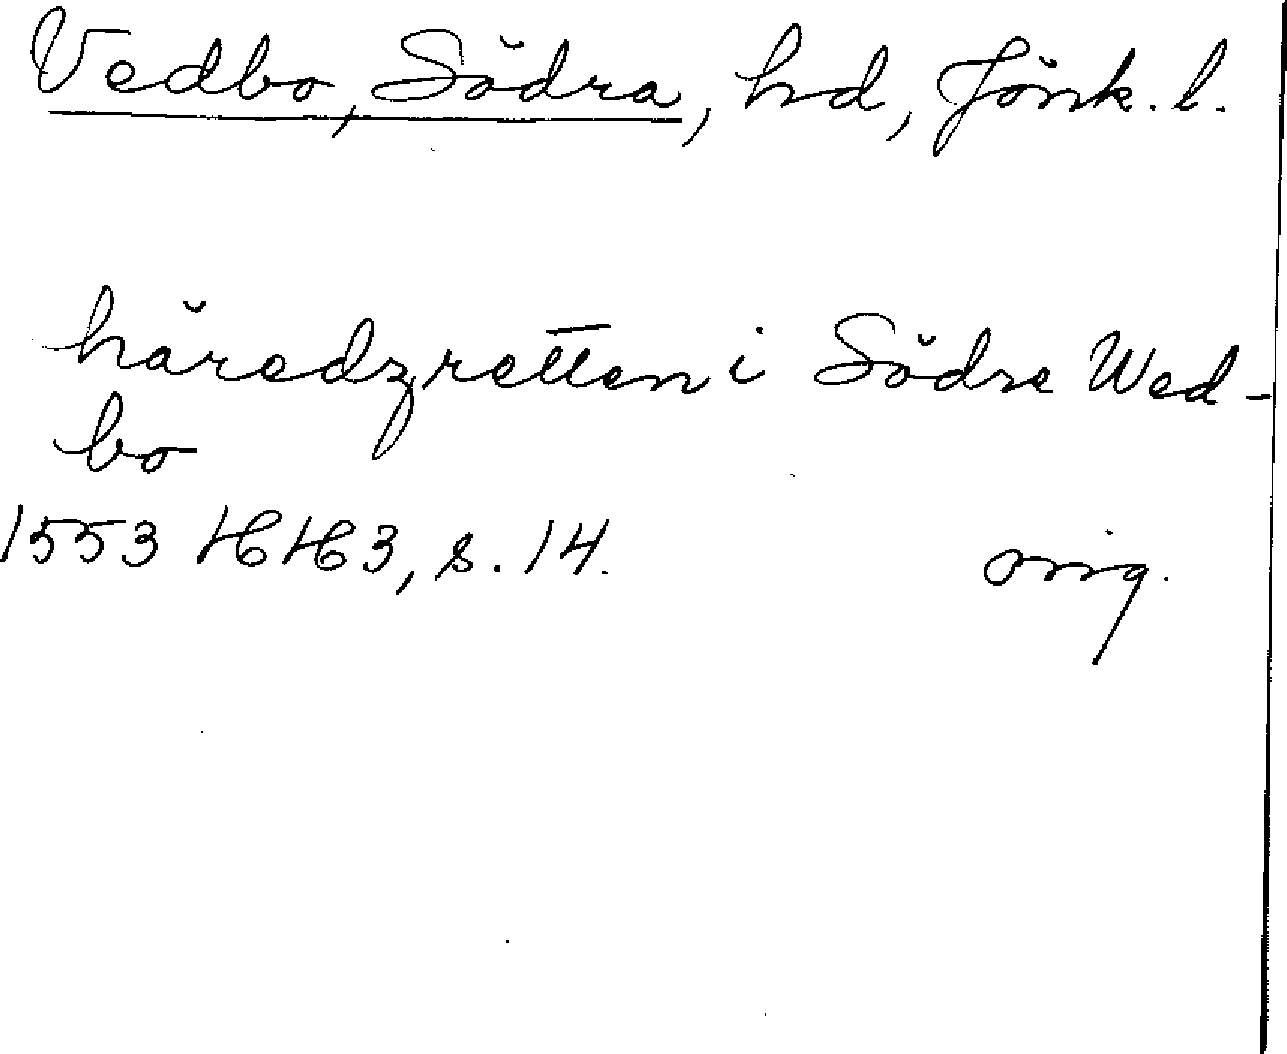 Vedbo, Södra, hd, Jönk. l.
häredzretten i Södre Wed-
bo
1553 HH3, s. 14. orig.